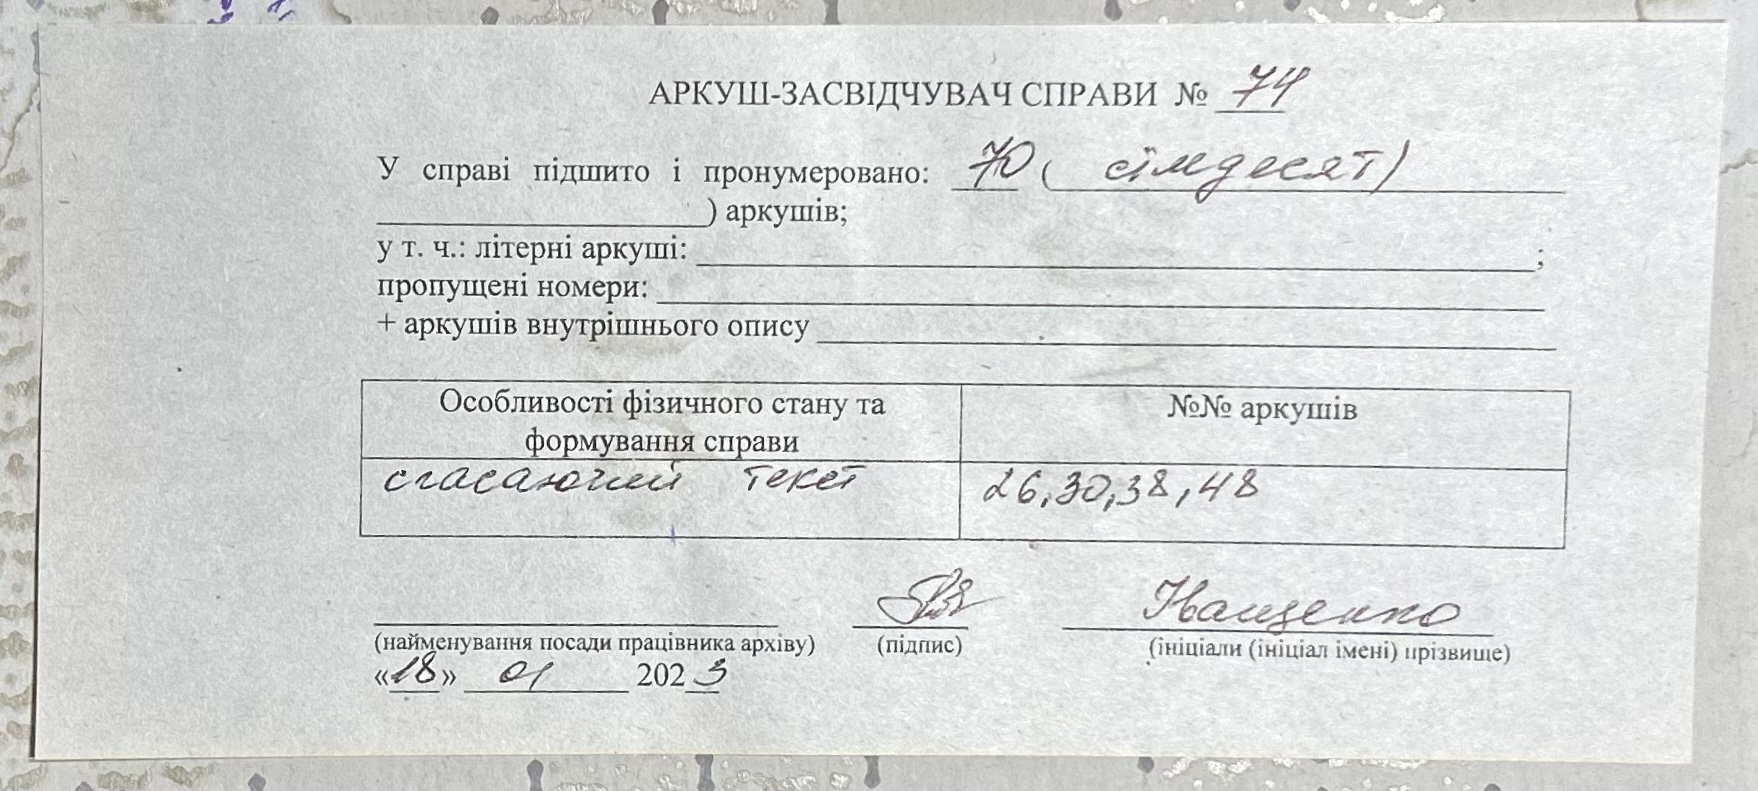 АРКУШ-ЗАСВІДЧУВАЧ СПРАВИ № 74
У справі підшито і пронумеровано: 70 ( сімдесят)
) аркушів;
у т. ч.: літерні аркуші: ;
пропущені номери:
+ аркушів внутрішнього опису
Особливості фізичного стану та формування справи
№№ аркушів
сгасаючий текст
26,30,38,48
Іващенко
(найменування посади працівника архіву) (підпис) (ініціали (ініціал імені) прізвище)
«18» 01 2023